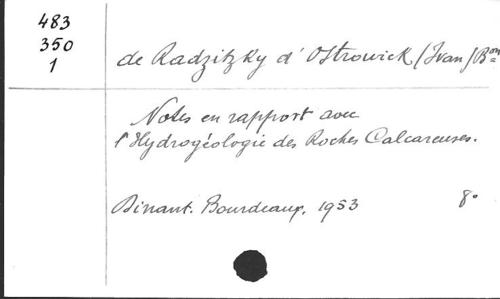 483
350
1
de Radzitzky d'Ostrowick (Ivan) Bon
Notes en rapport avec
l'Hydrogéologie des Roches Calcareuses.
Dinant. Bourdeaux, 1953 8°